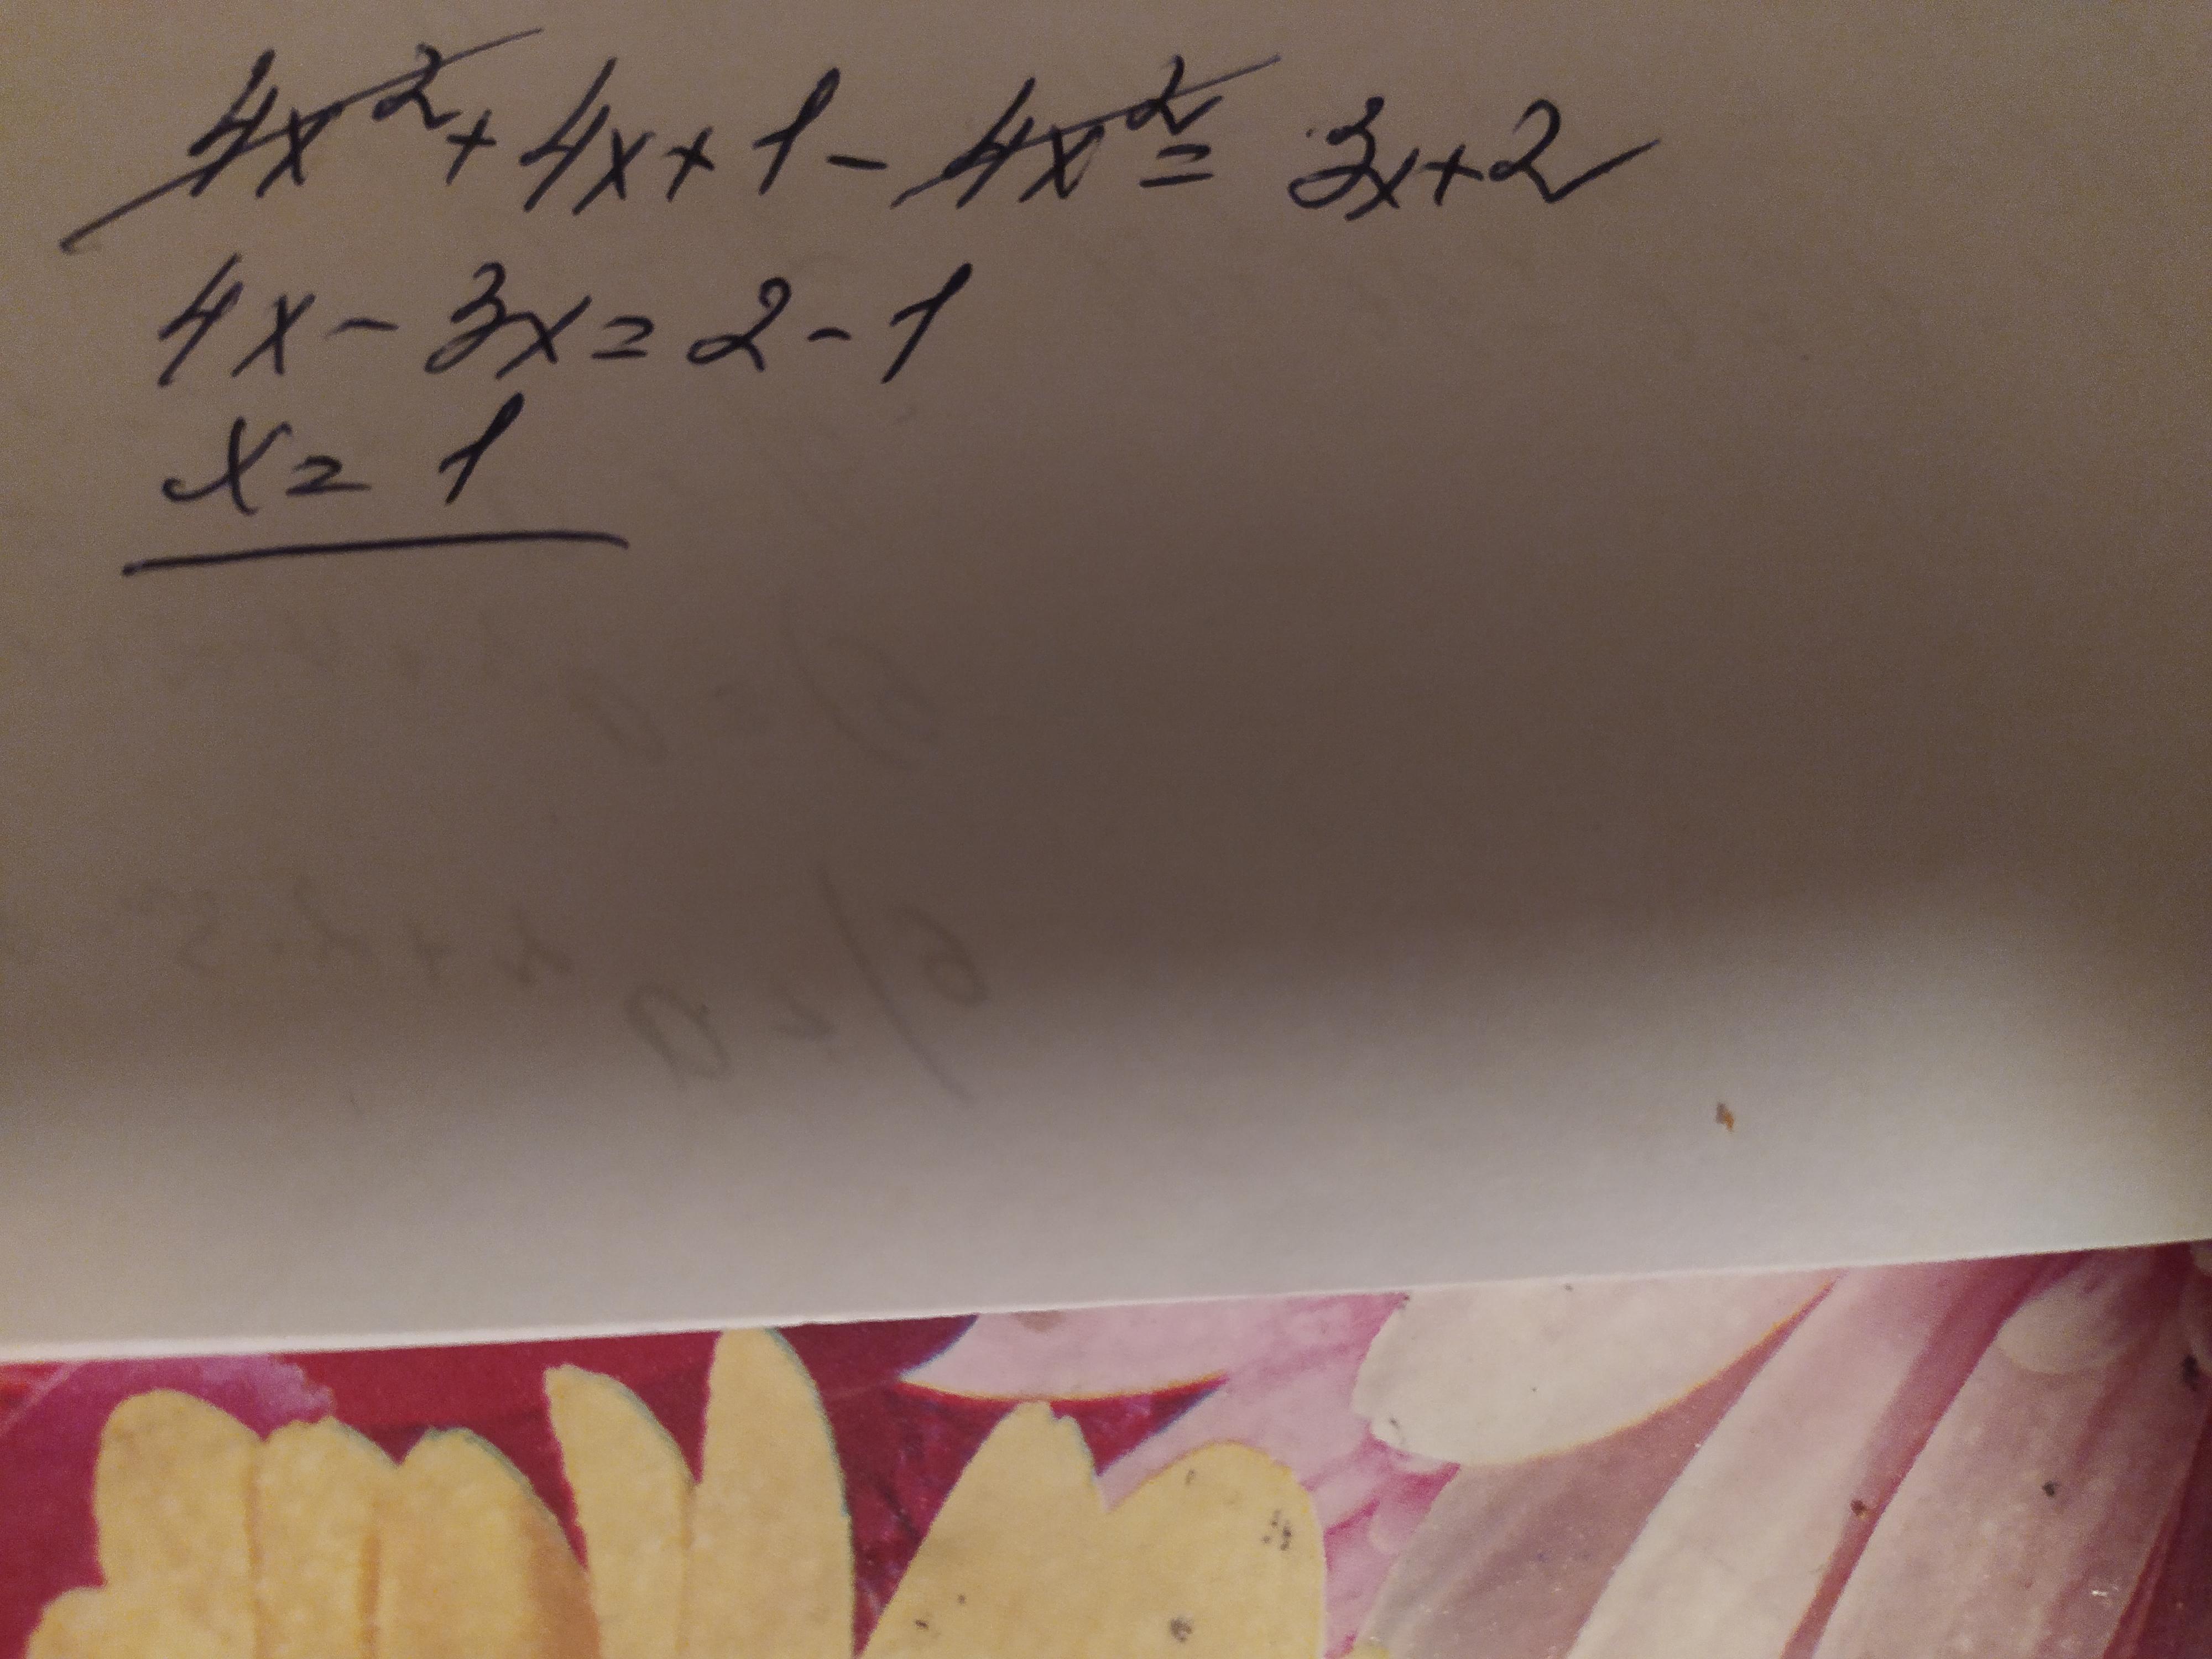 4x² + 4x + 1 - 4x² = 3x + 2
4x - 3x = 2 - 1
x = 1